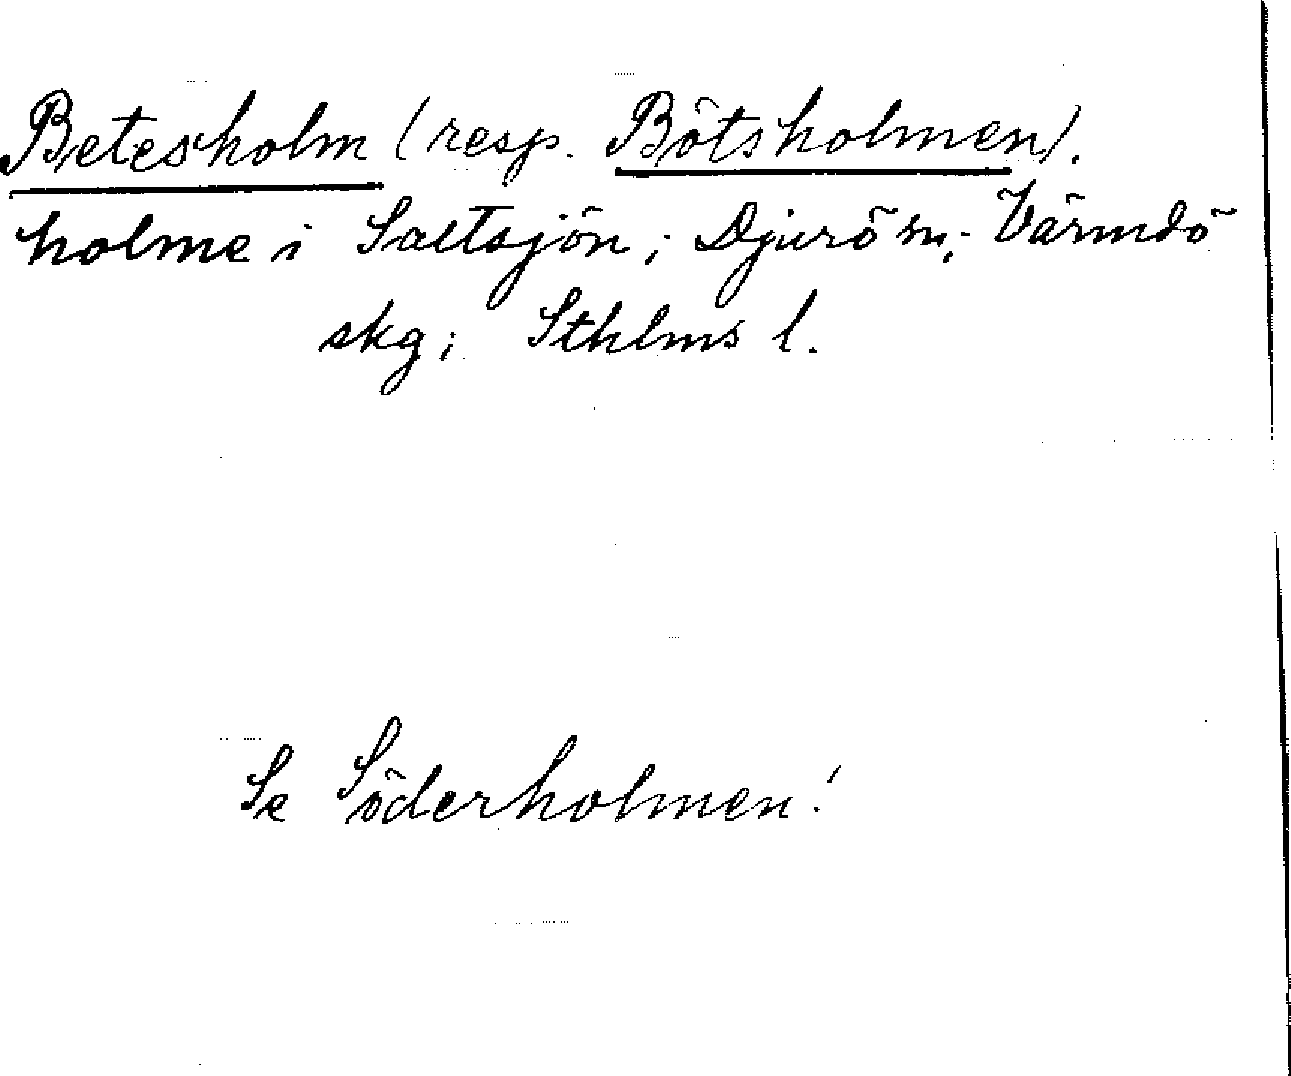 Betesholm (resp. Bötsholmen).
holme i Saltsjön; Djurö sn; Värmdö
skg; Sthlms l.
Se Söderholmen!